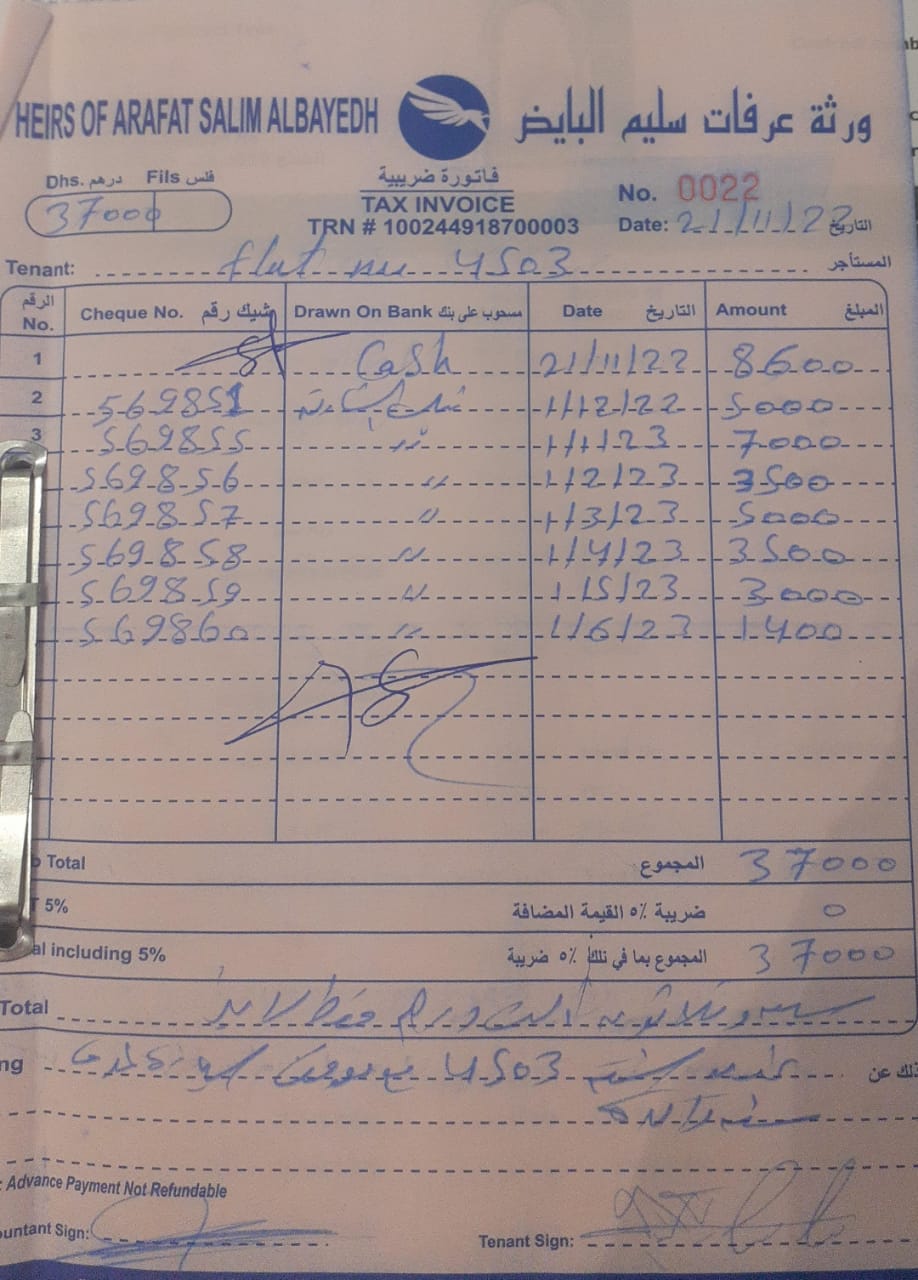 HEIRS OF ARAFAT SALIM ALBAYEDH ورثة عرفات سليم البايض
Dhs. درهم Fils فلس
37000
فاتورة ضريبية
TAX INVOICE
TRN # 100244918700003
No. 0022
Date: 21/11/22 التاريخ
Tenant: flat no 4503 المستأجر
الرقم No. Cheque No. شيك رقم Drawn On Bank مسحوب على بنك Date التاريخ Amount المبلغ
1 Cash 21/11/22 8600
2 569851 1/12/22 5000
3 569855 " 1/1/23 7000
569856 " 1/2/23 3500
569857 " 1/3/23 5000
569858 " 1/4/23 3500
569859 " 1/5/23 3000
569860 " 1/6/23 1400
Total المجموع 37000
5% ضريبة ٥% القيمة المضافة 0
including 5% المجموع بما في ذلك ٥% ضريبة 37000
Total وثلاثون ألف درهم فقط لا غير
4503
ذلك عن
Advance Payment Not Refundable
Sign:
Tenant Sign: